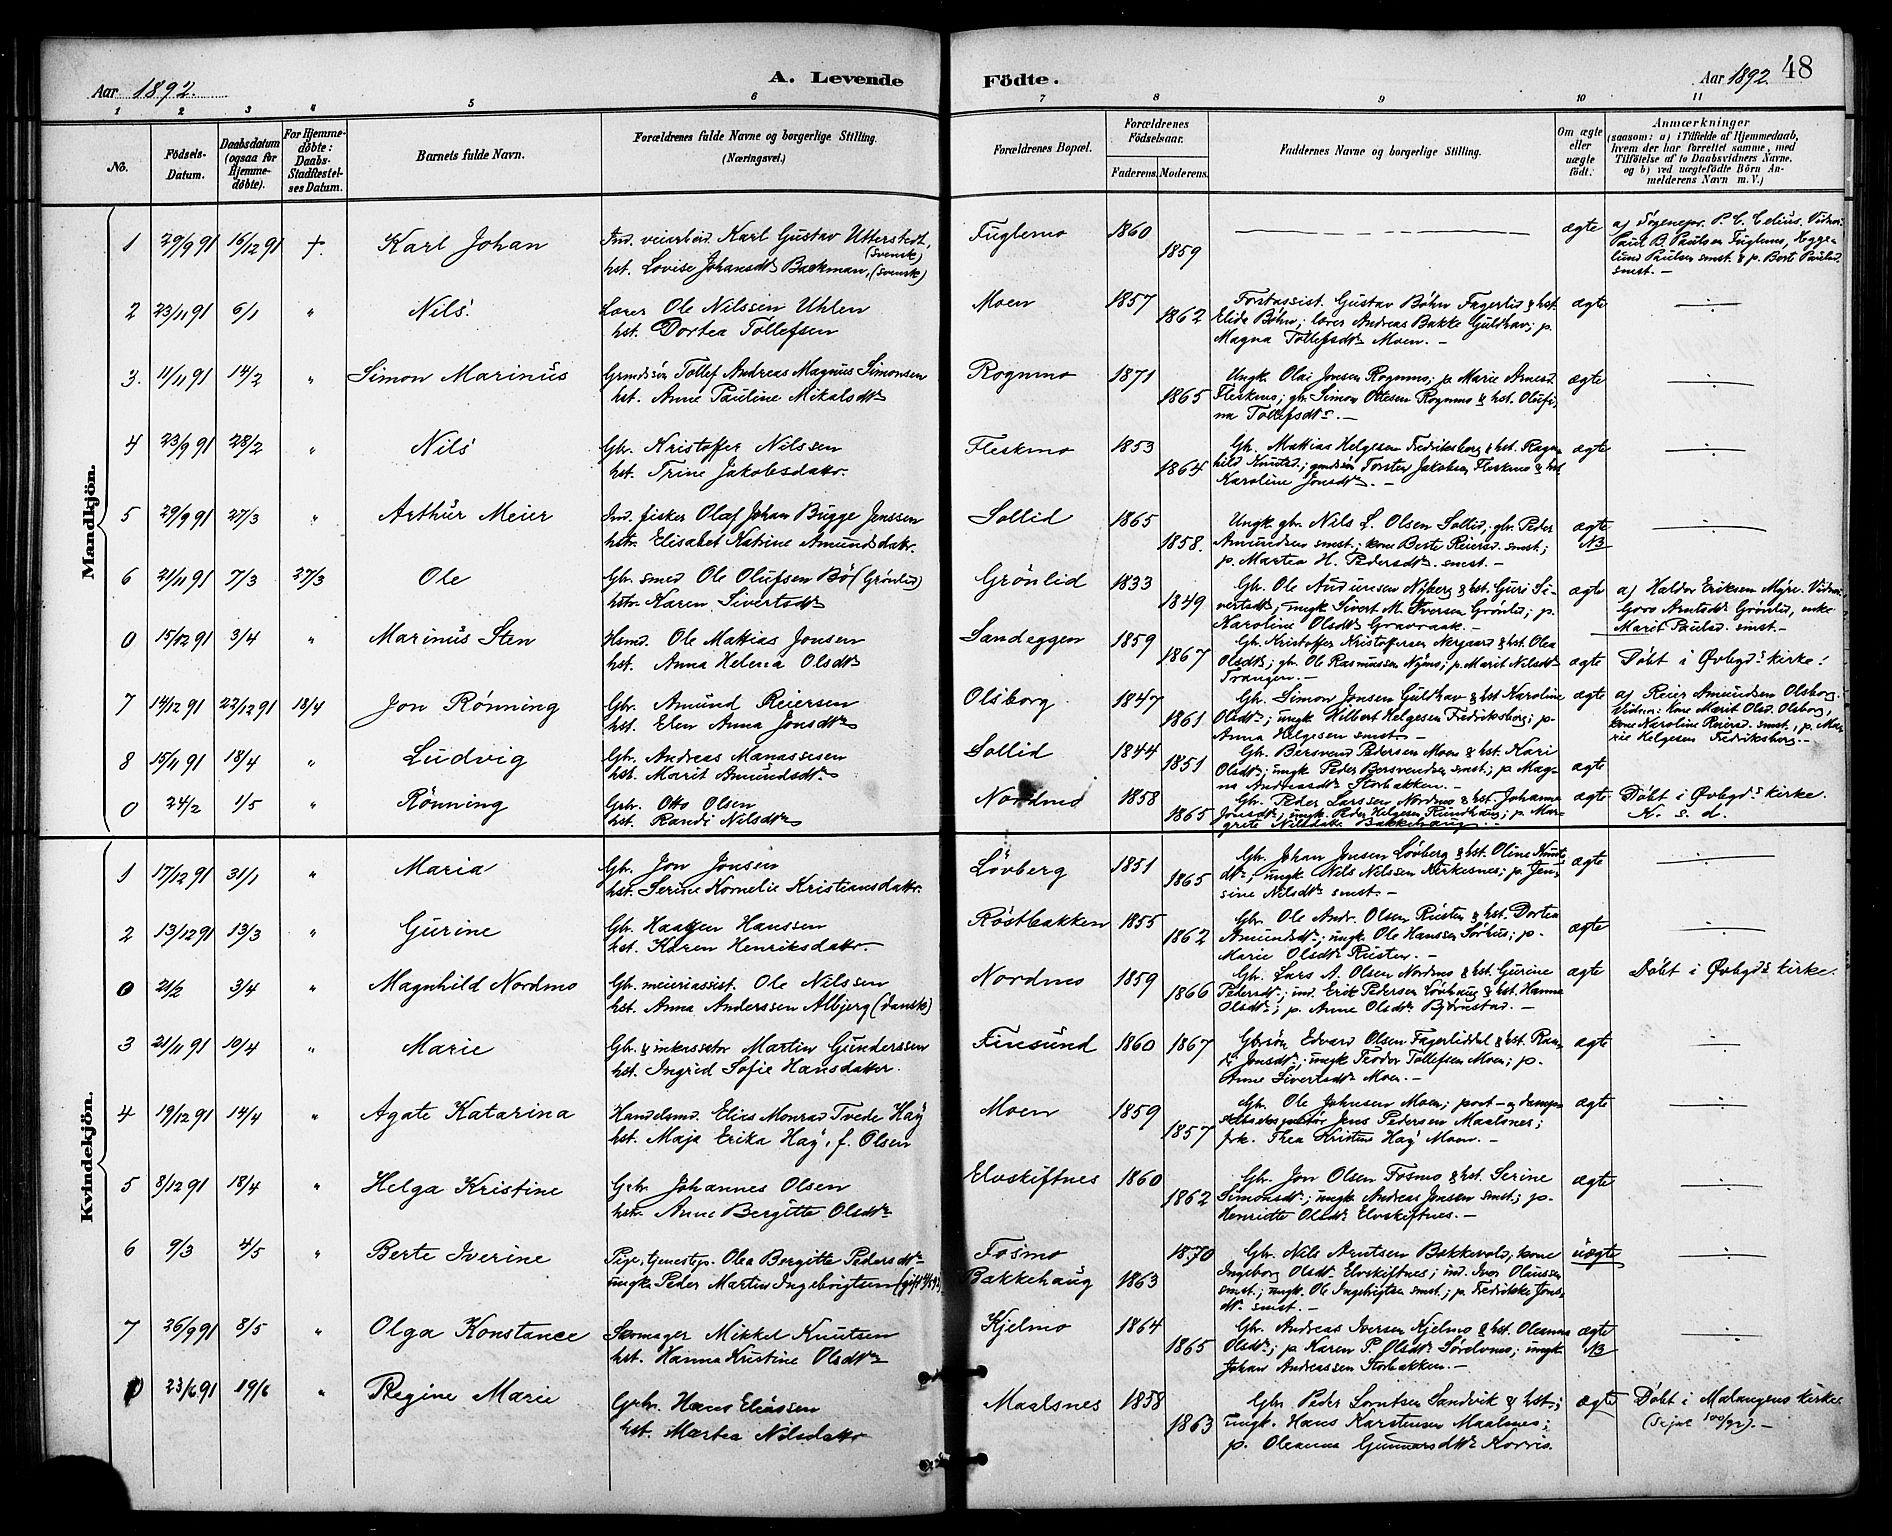 Aar 1892.
A. Levende
Födte.
Aar 1892. 48
1 2 3 4 5 6 7 8 9 10 11
No.
Födsels-Datum.
Daabsdatum (ogsaa for Hjemmedöbte).
For Hjemmedöbte: Daabs-Stadfæstelses Datum.
Barnets fulde Navn.
Forældrenes fulde Navne og borgerlige Stilling. (Næringsvei.)
Forældrenes Bopæl.
Forældrenes Födselsaar.
Faderens. Moderens.
Faddernes Navne og borgerlige Stilling.
Om ægte eller uægte födt.
Anmærkninger (saasom: a) i Tilfælde af Hjemmedaab, hvem der har forrettet samme, med Tilföielse af to Daabsvidners Navne, og b) ved uægtefödte Börn Anmelderens Navn m. V.)
Mandkjön.
1 29/9 91 16/12 91 †. Karl Johan
Ind. veiarbeid. Karl Gustav Utterstedt, (svensk)
hst. Lovise Johansdtr Backman, (svensk)
Fuglemo 1860 1859 ægte
a) Sognepr. P. C. Celius. Vidner:
Paul B. Paulsen Fuglemo, Hegge-
lund Paulsen smst. & p. Berit Paulsd.
smst. –
2 23/11 91 6/1 " Nils
Lærer Ole Nilssen Uhlen
hst. Dortea Tollefsen
Moen 1857 1862
Forstassist. Gustav Bøhn Fagerlid & hst.
Elida Bøhn; lærer Andreas Bakke Guldhav; p.
Magna Tollefsdtr Moen. –
ægte
3. 11/11 91 14/2 " Simon Marinus
Grmdsøn Tollef Andreas Magnus Simonsen
hst. Anne Pauline Mikalsdtr
Rognmo 1871 1865
Ungk. Olai Jensen Rognmo; p. Marie Arnesd.
Fleskmo; gbr. Simon Ottesen Rognmo & hst. Olufi-
na Tollefsdtr. –
ægte
4 23/9 91 28/2 " Nils
Gbr. Kristoffer Nilssen
hst. Trine Jakobsdatr.
Fleskmo 1853 1864
Gbr. Mattias Helgesen Fredriksborg & hst. Ragn-
hild Knutsd.; gmdsøn Torsten Jakobsen Fleskmo & hst.
Karoline Jonsdtr. –
ægte
5 29/9 91 27/3 " Arthur Meier
Ind. fisker Olaf Johan Bugge Jenssen
hstr. Elisabet Katrine Amundsdatr.
Sollid 1865 1858.
Ungk. gbr. Nils L. Olsen Sollid; gbr. Peder
Amundsen smst.; kone Berte Reiersd. smst.;
p. Martea H. Pedersdtr. smst. –
ægte NB
6 21/11 91 7/3 27/3 Ole
Gbr. smed Ole Olufsen Bö (Grönlid)
hstr. Karen Sivertsdtr
Grönlid 1833 1849
Gbr. Ole Audunsen Nyberg & hst. Guri Si-
vertsdtr; ungk. Sivert M. Iversen Grønlid; p.
Karoline Olsdtr Gravraak. –
ægte
a) Haldor Eriksen Myre. Vidner:
Goro Arntsdtr Grønlid, enke
Marit Paulsd. smst. –
0 15/12 91 3/4 " Marinus Sten
Hsmd. Ole Mattias Jonsen
hst. Anna Helena Olsdtr
Sandeggen 1859 1867
Gbr. Kristoffer Kristoffersen Nergaard & hst. Olea
Olsdtr; gbr. Ole Rasmussen Nymo; p. Marit Nilsdtr
Trangen. –
ægte Döbt i Øvbygds kirke.
7 14/12 91 22/12 91 18/4 Jon Rönning
Gbr. Amund Reiersen
hst. Elen Anna Jonsdtr
Olsborg 1847 1861
Gbr. Simon Jonsen Guldhav & hst. Karoline
Olsdtr; ungk. Hilbert Helgesen Fredriksborg; p.
Anna Helgesen smst. –
ægte
a) Reier Amundsen Olsborg.
Vidner: kone Marit Olsd. Olsborg,
kone Karoline Reiersd. smst., p. Ma-
rie Helgesen Fredriksborg. –
8 15/11 91 18/4 " Ludvig
Gbr. Andreas Manassesen
hst. Marit Amundsdtr
Sollid 1844 1851
Gbr. Bersvend Pedersen Moen & hst. Kari
Olsdtr; ungk. Peder Bersvendsen smst.; p. Mag-
na Andreasdtr Storbakken. –
ægte
0 24/2 1/5 " Rönning
Gbr. Otto Olsen
hst. Randi Nilsdtr
Nordmo 1858 1865
Gbr. Peder Larssen Nordmo & hst. Johanna
Jonsdtr; ungk. Peder Helgesen Rundhaug; p. Mar-
grete Nilsdatr Bakkehaug. –
ægte Döbt i Øvbygds kirke.
K. s. d.
Kvindekjön.
1 17/12 91 31/1 " Maria
Gbr. Jon Jonsen
hst. Serine Kornelie Kristiansdatr.
Lövberg 1851 1865
Gbr. Johan Jonsen Lövberg & hst. Oline Knuts-
dtr; ungk. Nils Nilssen Kirkesnes; p. Jen-
sine Nilsdtr smst. –
ægte
2 13/12 91 13/3 " Gurine
Gbr. Haaken Hanssen
hst. Karen Henriksdatr.
Röstbakken 1855 1862
Gbr. Ole Andr. Olsen Rusten & hst. Dortea
Amundsdtr; ungk. Ole Hanssen Sørhus; p.
Marie Olsdtr Rusten. –
ægte
0 21/2 3/4 " Magnhild Nordmo
Gbr. meieriassist. Ole Nilssen
hst. Anna Anderssen Albjerg (dansk)
Nordmo 1859 1866
Gbr. Lars A. Olsen Nordmo & hst. Gurine
Pedersdtr; ind. Erik Pedersen Løvhaug & hst. Hanna
Olsdtr; p. Anne Olsdtr Bjørnstad. –
ægte Döbt i Øvbygds kirke.
3 21/11 91 10/4 " Marie
Gbr. & inkassator Martin Gunderssen
hst. Ingrid Sofie Hansdatter.
Finsund 1860 1867
Gbrsøn Edvard Olsen Fagerliddal & hst. Ran-
di Jonsdtr; ungk. Teodor Tollefsen Moen; p.
Anne Sivertsdtr Moen. –
ægte
4 19/12 91 14/4 " Agate Katarina
Handelsmd. Elias Monrad Tvede Hay
hst. Maja Erika Hay, f. Olsen
Moen 1859 1857
Gbr. Ole Johnsen Moen; post- og dampsk.
expeditør Jens Pedersen Maalsnes;
frk. Thea Kristine Hay Moen. –
ægte
5 8/12 91 18/4 " Helga Kristine
Gbr. Johannes Olsen
hstr. Anne Bergitte Olsdtr
Elvskiftnes 1860 1862
Gbr. Jon Olsen Fosmo & hst. Serine
Simonsdtr; ungk. Andreas Jensen smst.; p.
Henriette Olsdtr Elvskiftnes. –
ægte
6 9/3 4/5 " Berte Iverine
Pige, tjenestep. Olea Bergitte Pedersdtr
ungk. Peder Martin Ingebrigtsen
Fosmo Bakkehaug 1863 1870
Gbr. Nils Arntsen Bakkevold; kone
Ingeborg Olsdtr Elvskiftnes; ind. Iver Olaussen
smst.; ungk. Ole Ingebrigtsen smst.; p. Fredrikke Jons-
dtr smst. –
uægte
7 26/9 91 8/5 " Olga Konstance
Skomager Mikkel Knutsen
hst. Hanna Kristine Olsdtr
Kjelmo 1864 1865
Gbr. Andreas Iversen Kjelmo & hst. Oleanna
Olsdtr; p. Karen P. Olsdtr Sørelvmo; ungk.
Johan Andreassen Storbakken. –
ægte NB
0 23/6 91 19/6 " Regine Marie
Gbr. Hans Eliassen
hst. Martea Nilsdatr
Maalsnes 1858 1863
Gbr. Peder Lorntsen Sandvik & hst.;
ungk. Hans Karstensen Maalsnes;
p. Oleanna Gunnarsdtr Korvis.
ægte Döbt i Malangens kirke